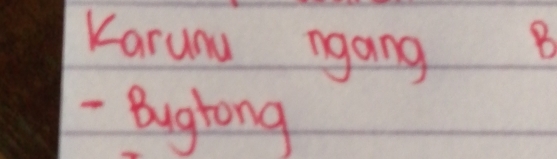 Karunu ngang B
- Bugtong